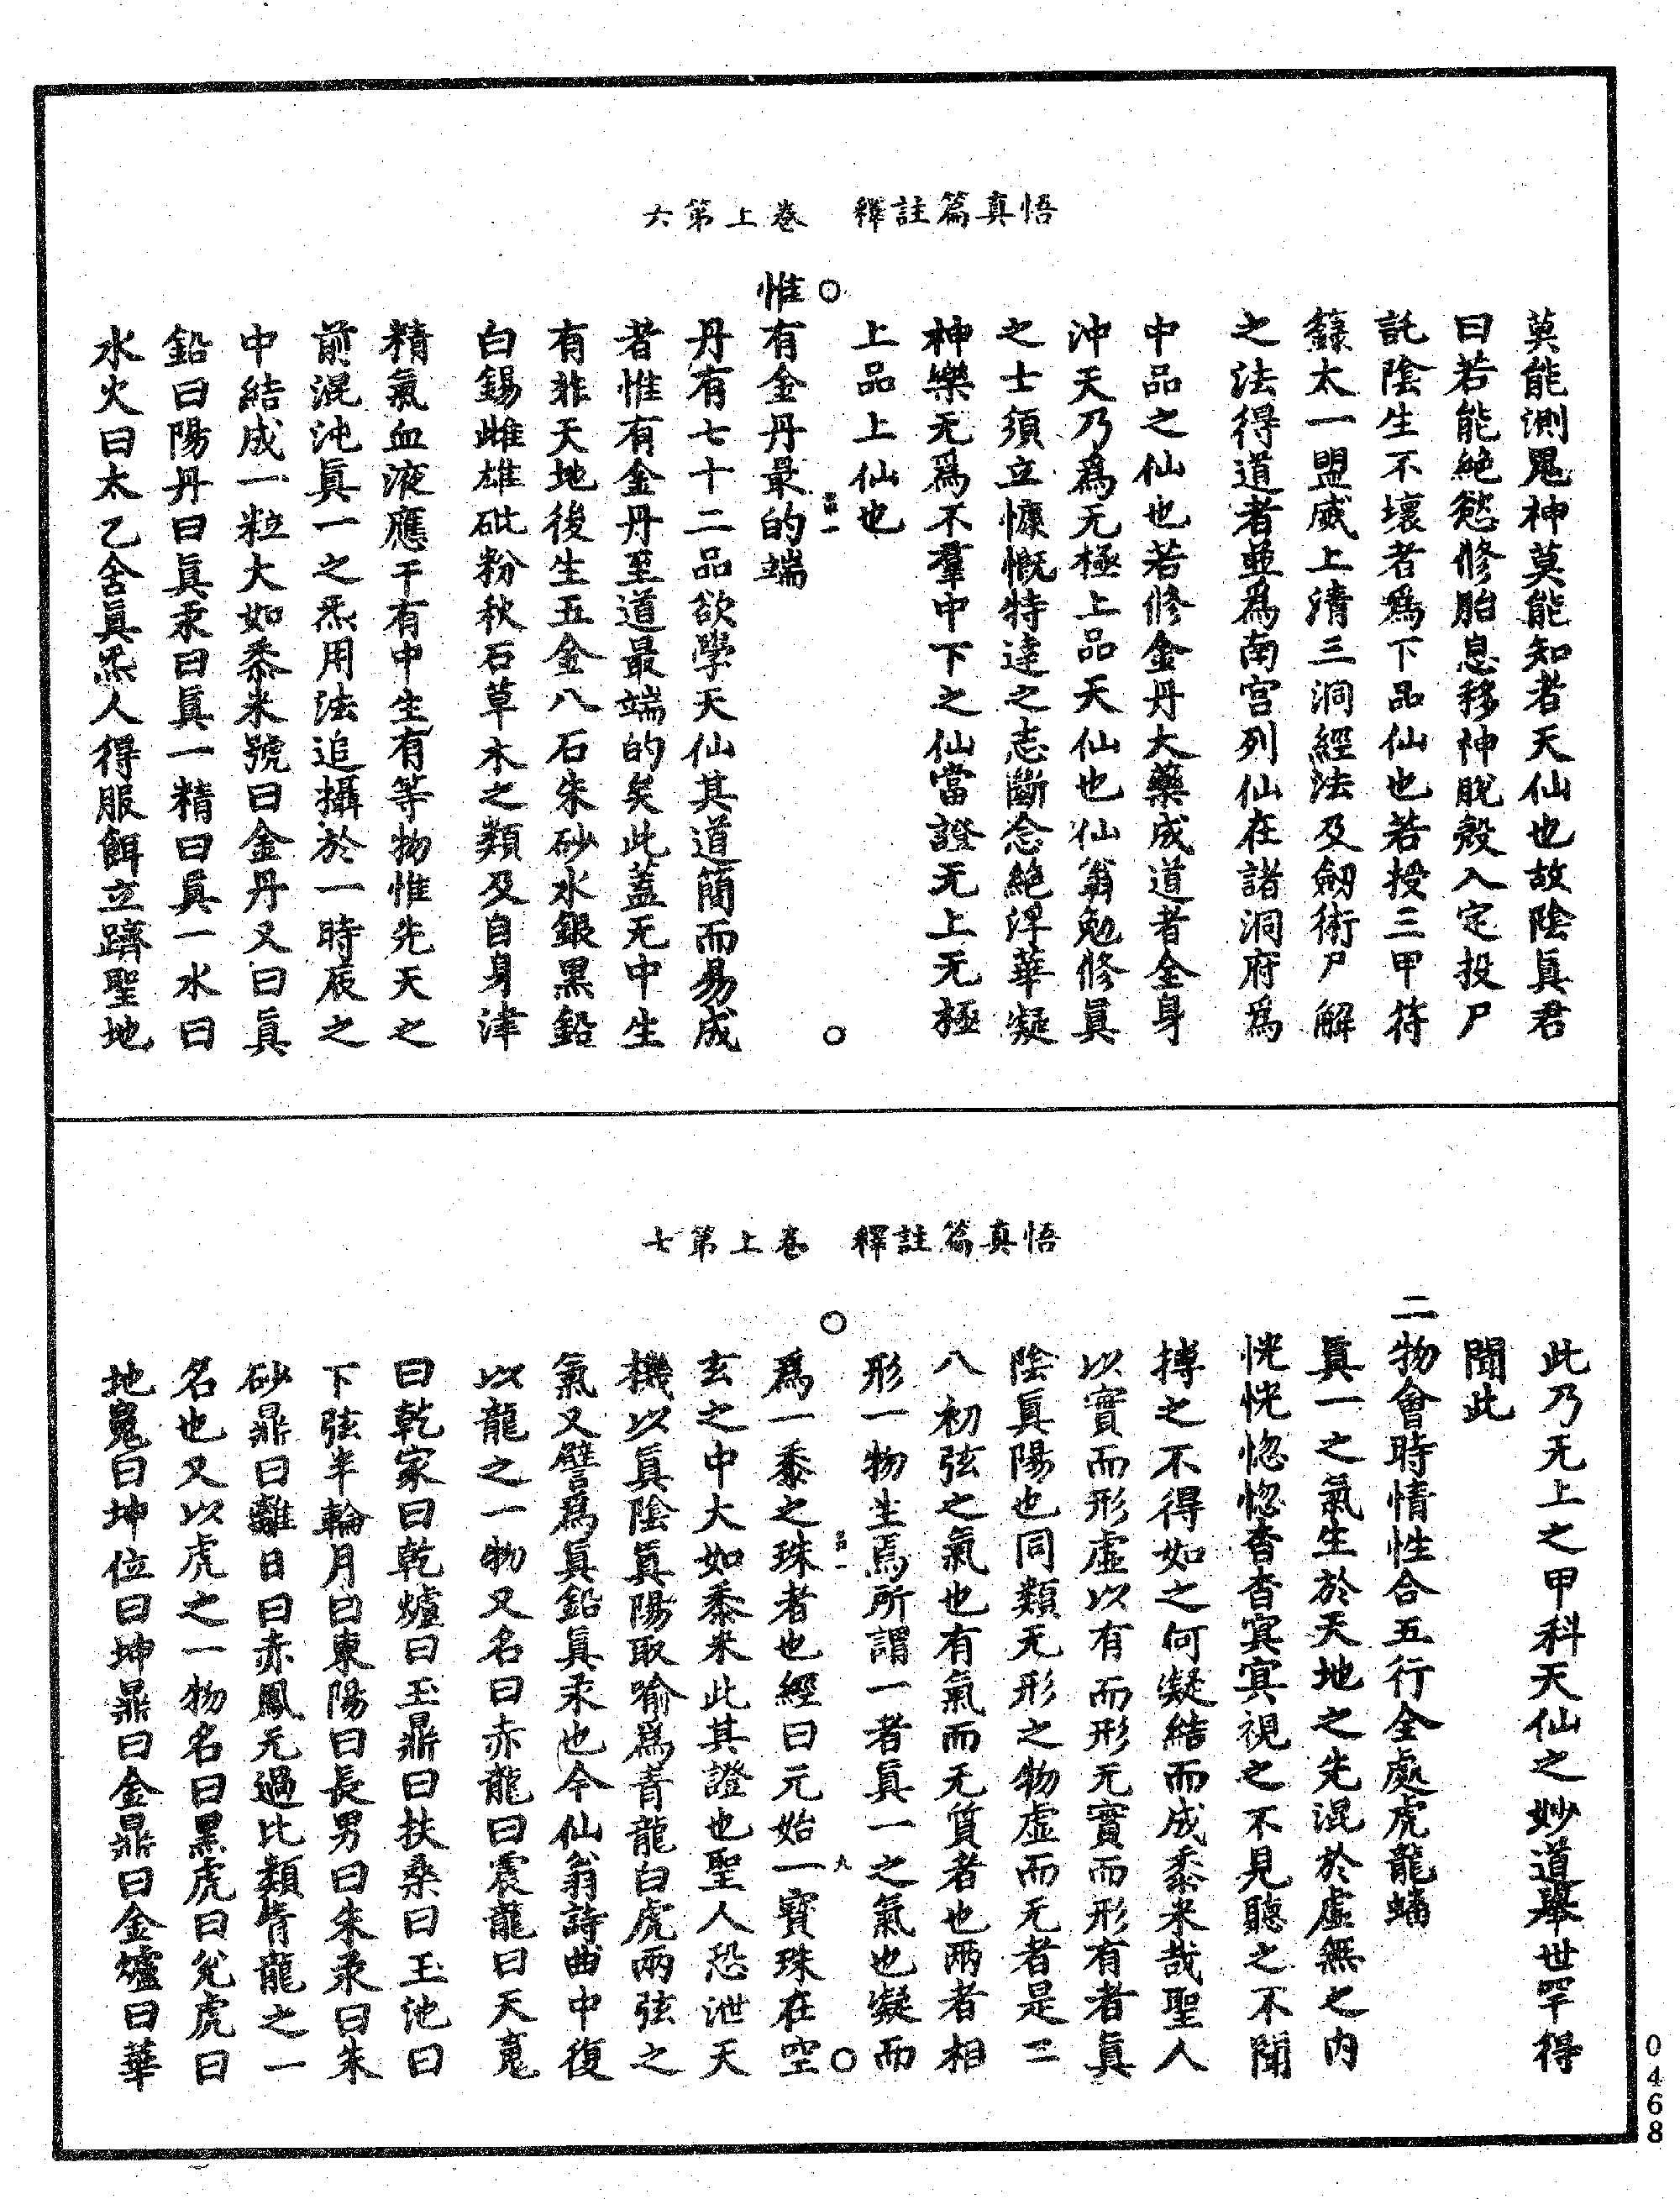 悟真篇註釋　卷上第六
莫能測鬼神莫能知者天仙也故陰眞君
曰若能絶慾修胎息移神脫殼入定投尸
託陰生不壞者爲下品仙也若授三甲符
籙太一盟威上清三洞經法及劒術尸解
之法得道者並爲南宫列仙在諸洞府爲
中品之仙也若修金丹大藥成道者全身
沖天乃爲无極上品天仙也仙翁勉修眞
之士須立慷慨特達之志斷念絶浮華凝
神樂无爲不羣中下之仙當證无上无極
上品上仙也
惟有金丹最的端
丹有七十二品欲學天仙其道簡而易成
者惟有金丹至道最端的矣此蓋无中生
有非天地後生五金八石朱砂水銀黑鉛
白錫雌雄砒粉秋石草木之類及自身津
精氣血液應干有中生有等物惟先天之
前混沌眞一之炁用法追攝於一時辰之
中結成一粒大如黍米號曰金丹又曰眞
鉛曰陽丹曰眞汞曰眞一精曰眞一水曰
水火曰太乙含眞炁人得服餌立躋聖地
悟真篇註釋　卷上第七
此乃无上之甲科天仙之妙道舉世罕得
聞此
二物會時情性合五行全處虎龍蟠
眞一之氣生於天地之先混於虛無之内
恍恍惚惚杳杳冥冥視之不見聽之不聞
搏之不得如之何凝結而成黍米哉聖人
以實而形虛以有而形无實而形有者眞
陰眞陽也同類无形之物虛而无者是二
八初弦之氣也有氣而无質者也兩者相
形一物生焉所謂一者眞一之氣也凝而
爲一黍之珠者也經曰元始一寶珠在空
玄之中大如黍米此其證也聖人恐泄天
機以眞陰眞陽取喻爲青龍白虎兩弦之
氣又譬爲眞鉛眞汞也今仙翁詩曲中復
以龍之一物又名曰赤龍曰震龍曰天䰟
曰乾家曰乾爐曰玉鼎曰扶桑曰玉池曰
下弦半輪月曰東陽曰長男曰朱汞曰朱
砂鼎曰離日曰赤鳳无過比類青龍之一
名也又以虎之一物名曰黑虎曰兊虎曰
地䰟曰坤位曰坤鼎曰金鼎曰金爐曰華
0468